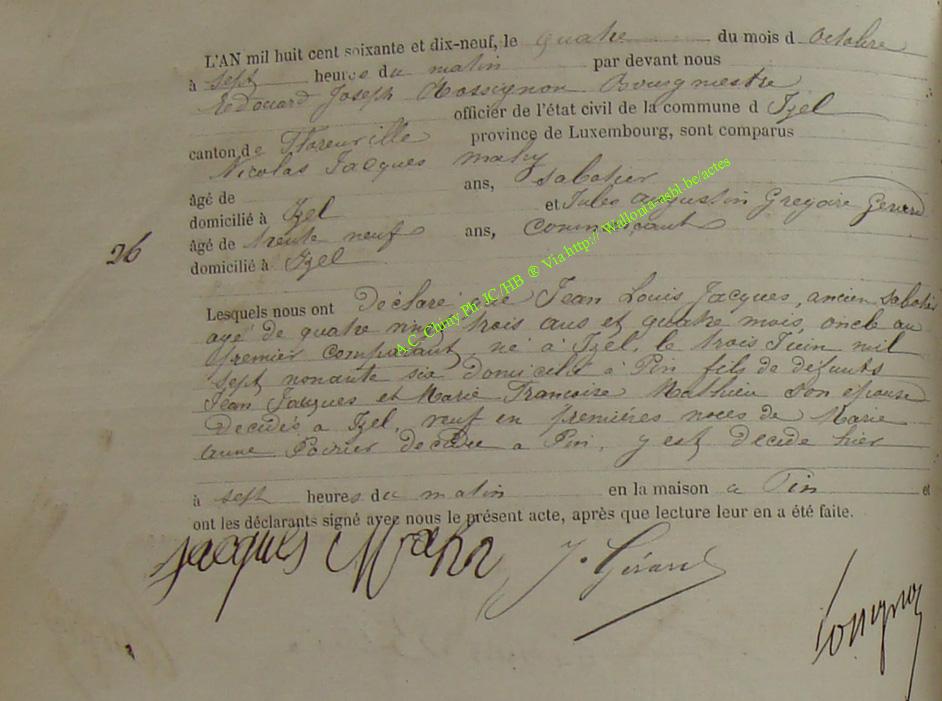 L'AN mil huit cent soixante et dix-neuf, le quatre du mois d Octobre
à sept heures du matin par devant nous
Edouard Joseph Rossignon Bourgmestre
officier de l'état civil de la commune d Izel
canton de Florenville province de Luxembourg, sont comparus
Nicolas Jacques Mahy
âgé de ans, sabotier
domicilié à Izel et Jules Augustin Gregoire Gerard
26
âgé de trente neuf ans, commerçant
domicilié à Izel
Lesquels nous ont déclaré que Jean Louis Jacques, ancien sabotier
agé de quatre vingt trois ans et quatre mois, oncle au
premier comparant, né à Izel, le trois Juin mil
sept nonante six domicilié à Pin fils de défunts
Jean Jacques et Marie Francoise Mathieu son epouse
décidés a Izel, veuf en premières noces de Marie
anne Poirier decédée a Pin, y est decide hier
à sept heures du matin en la maison a Pin et
ont les déclarants signé avec nous le présent acte, après que lecture leur en a été faite.
Jacques J. Gérard
A.C. Chiny Ph. JC/HB ® Via http:// Wallonia-asbl.be/actes